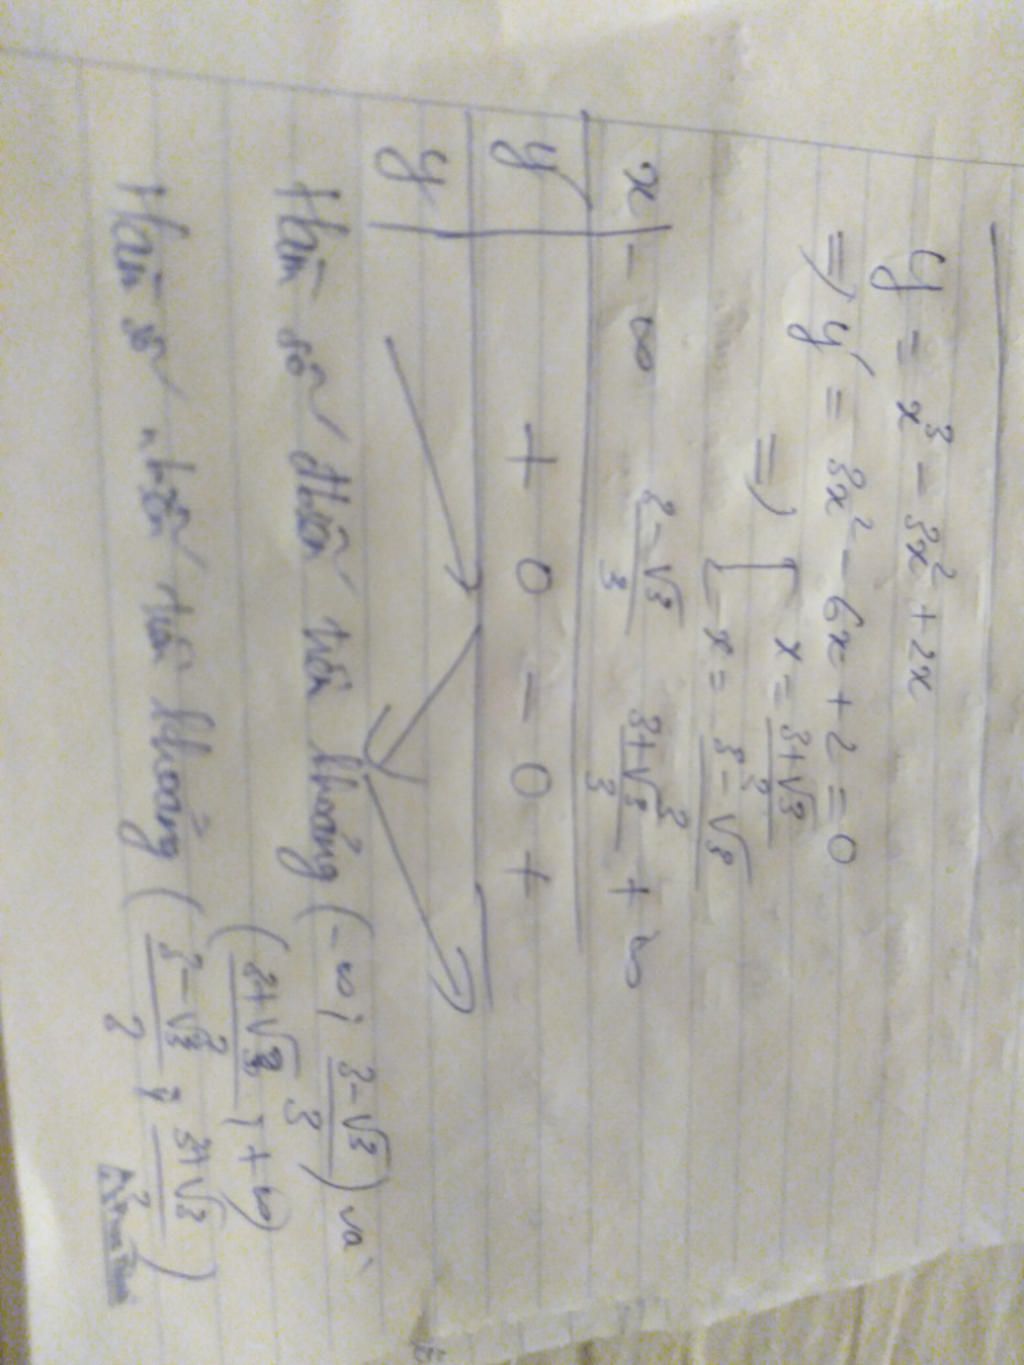 y = x³ - 3x² + 2x
=) y' = 3x² - 6x + 2 = 0
=) [ x = (3+√3)/3
x = (3-√3)/3
x | -∞ (3-√3)/3 (3+√3)/3 +∞
y' | + 0 - 0 +
y
Hàm số đồng biến trên khoảng (-∞; (3-√3)/3) và
((3+√3)/3; +∞)
Hàm số nghịch biến trên khoảng ((3-√3)/2; (3+√3)/